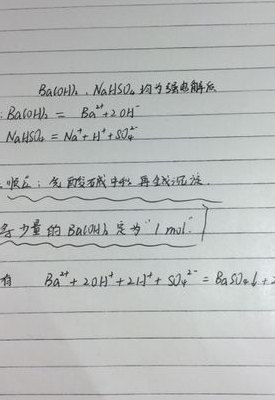 Ba(OH)₂、NaHSO₄ 均为强电解质
: Ba(OH)₂ = Ba²⁺+2OH⁻
NaHSO₄ = Na⁺+H⁺+SO₄²⁻
顺序：先酸碱中和 再生成沉淀.
少量的 Ba(OH)₂ 定为“1 mol”
有 Ba²⁺+2OH⁺+2H⁺+SO₄²⁻=BaSO₄↓+2